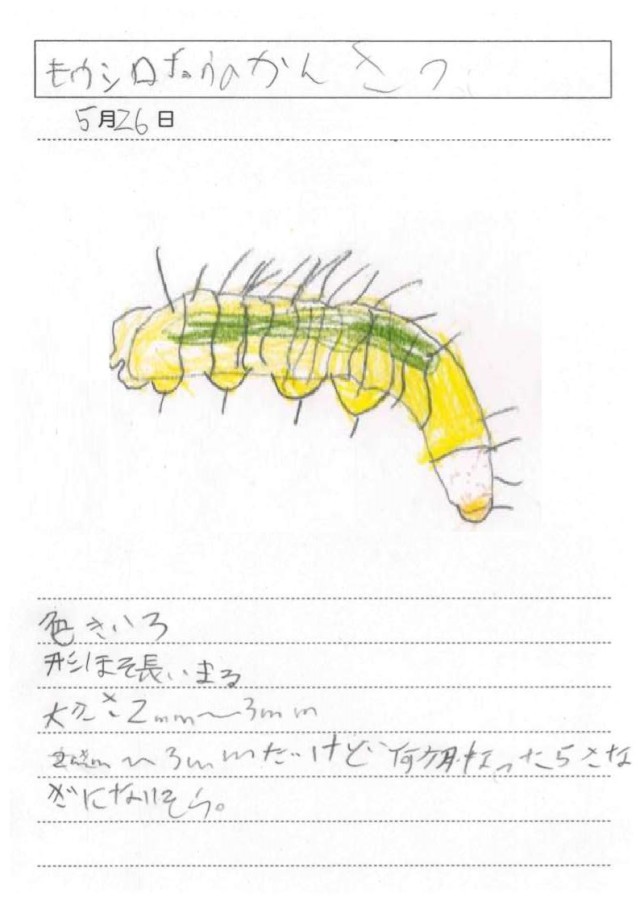 モンシロちょうのかんさつ
5月26日
色きいろ
形ほそ長いまる
大きさ2mm〜3mm
〜3mmだけど何かになったらさな
ぎになりそう。